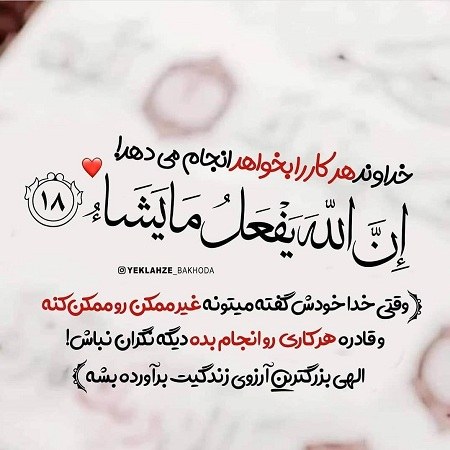 خداوند هر کار را بخواهد انجام می دهد!
إِنَّ اللَّهَ يَفْعَلُ مَا يَشَاءُ ۱۸
YEKLAHZE_BAKHODA
وقتی خدا خودش گفته میتونه غیر ممکن رو ممکن کنه
و قادره هر کاری رو انجام بده دیگه نگران نباش!
الهی بزرگترین آرزوی زندگیت برآورده بشه